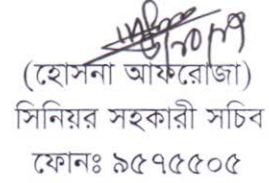 (হোসনা আফরোজা)
সিনিয়র সহকারী সচিব
ফোনঃ ৯৫৭৫৫০৫